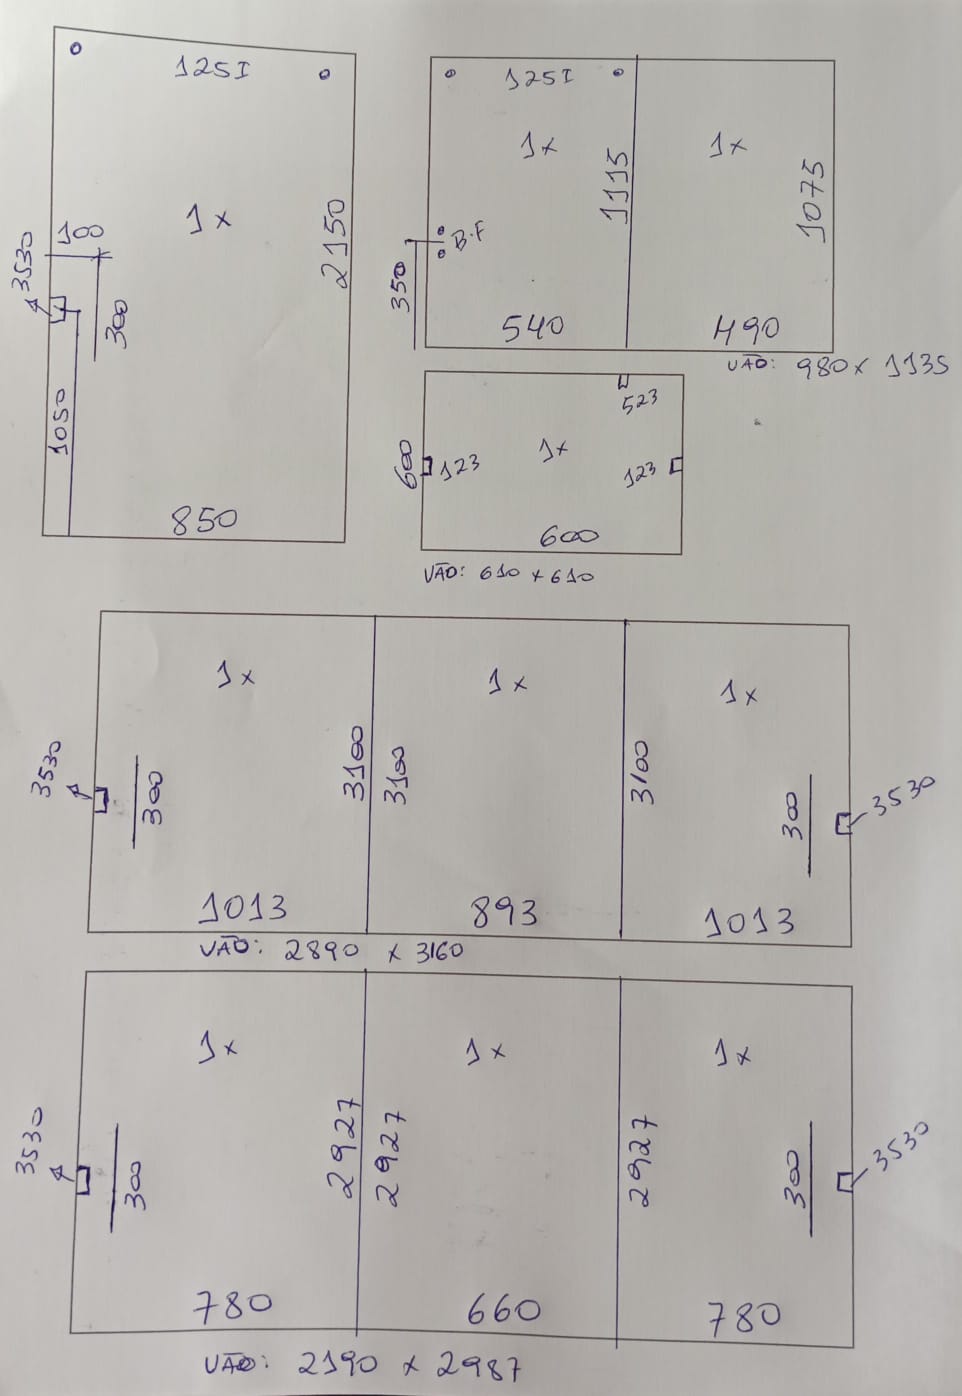 125I
1x
2150
100
3530
300
1050
850
125I
1x
1115
B.F
350
540
1x
1075
490
VÃO: 980 x 1135
523
600
123
1x
123
600
VÃO: 610 x 610
1x
3530
300
3100
1013
1x
3100
893
1x
3100
300
3530
1013
VÃO: 2890 x 3160
1x
3530
300
2927
780
1x
2927
660
1x
2927
300
3530
780
VÃO: 2190 x 2987